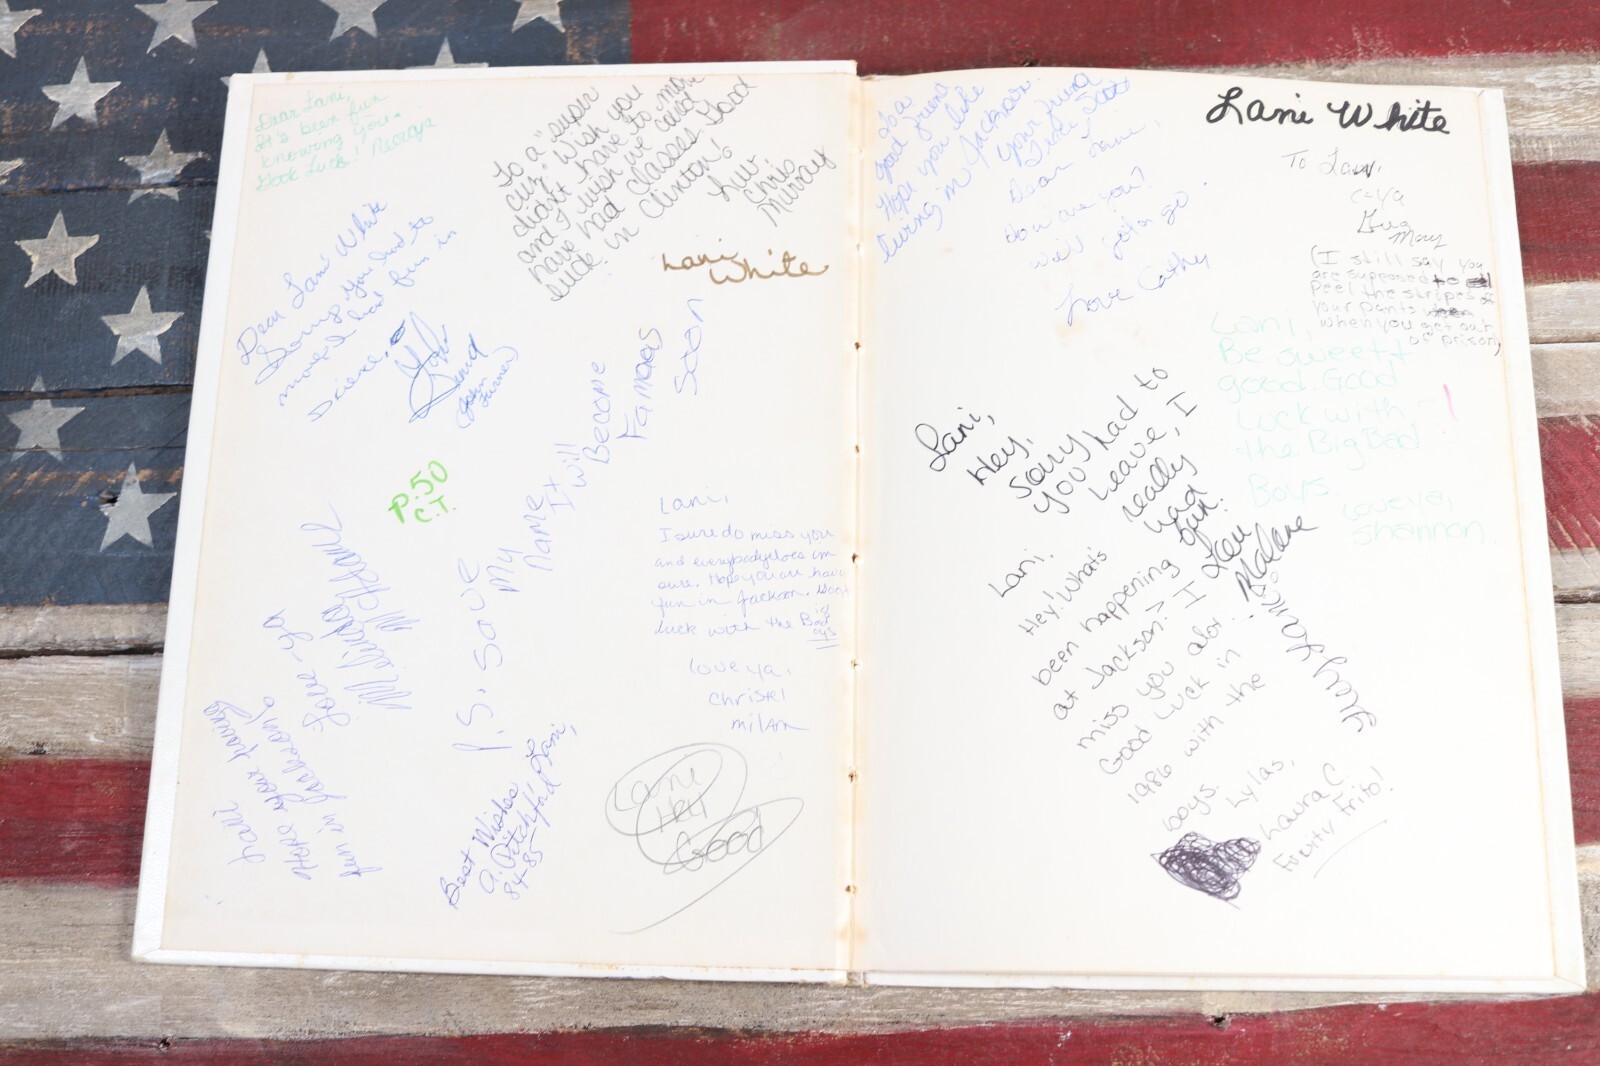 Dear Lani,
It's been fun
knowing you.
Good Luck!
To a "super
cuz." Wish you
didn't have to move
and I wish we could
have had classes. Good
luck in Clinton!
Luv
Chris
Murray
Lani
White
Dear Lani White
Sorry you had to
move. I had fun in
Science.
John
(John
Turner)
P.50
C.T.
P.S. Save
My
Name
I Will
Become
Famoes
Soon
Lani,
I sure do miss you
and everybody does im
sure. Hope you are have
fun in Jackson. Good
luck with the Big
Bad
Boys
love ya,
Christel
Milam
Lani
Hope your having
fun in Jackson
Love-Ya
Melinda
Best Wishes
to Lani,
A. Pitchford
84-85
Lani
Hey
Good
To a
good friend
Hope you like
living in Jackson.
Your friend
Scott
Dear Lani,
How are you?
will got a go.
Love Cathy
Lani White
To Lani,
c-ya
Greg
May
(I still say you
are supposed to
Peel the stripes of
your pants
when you get out
of prison)
Lani,
Be sweet
good. Good
Luck with
the Big Bad
Boys.
Love ya,
Shannon
Lani,
Hey,
Sorry
you had to
leave, I
really
had
fun.
Lani.
Hey! What's
been happening
at Jackson? I
miss you alot.
Good Luck in
1986 with the
boys.
Lylas,
Laura C.
Fruity Frito!